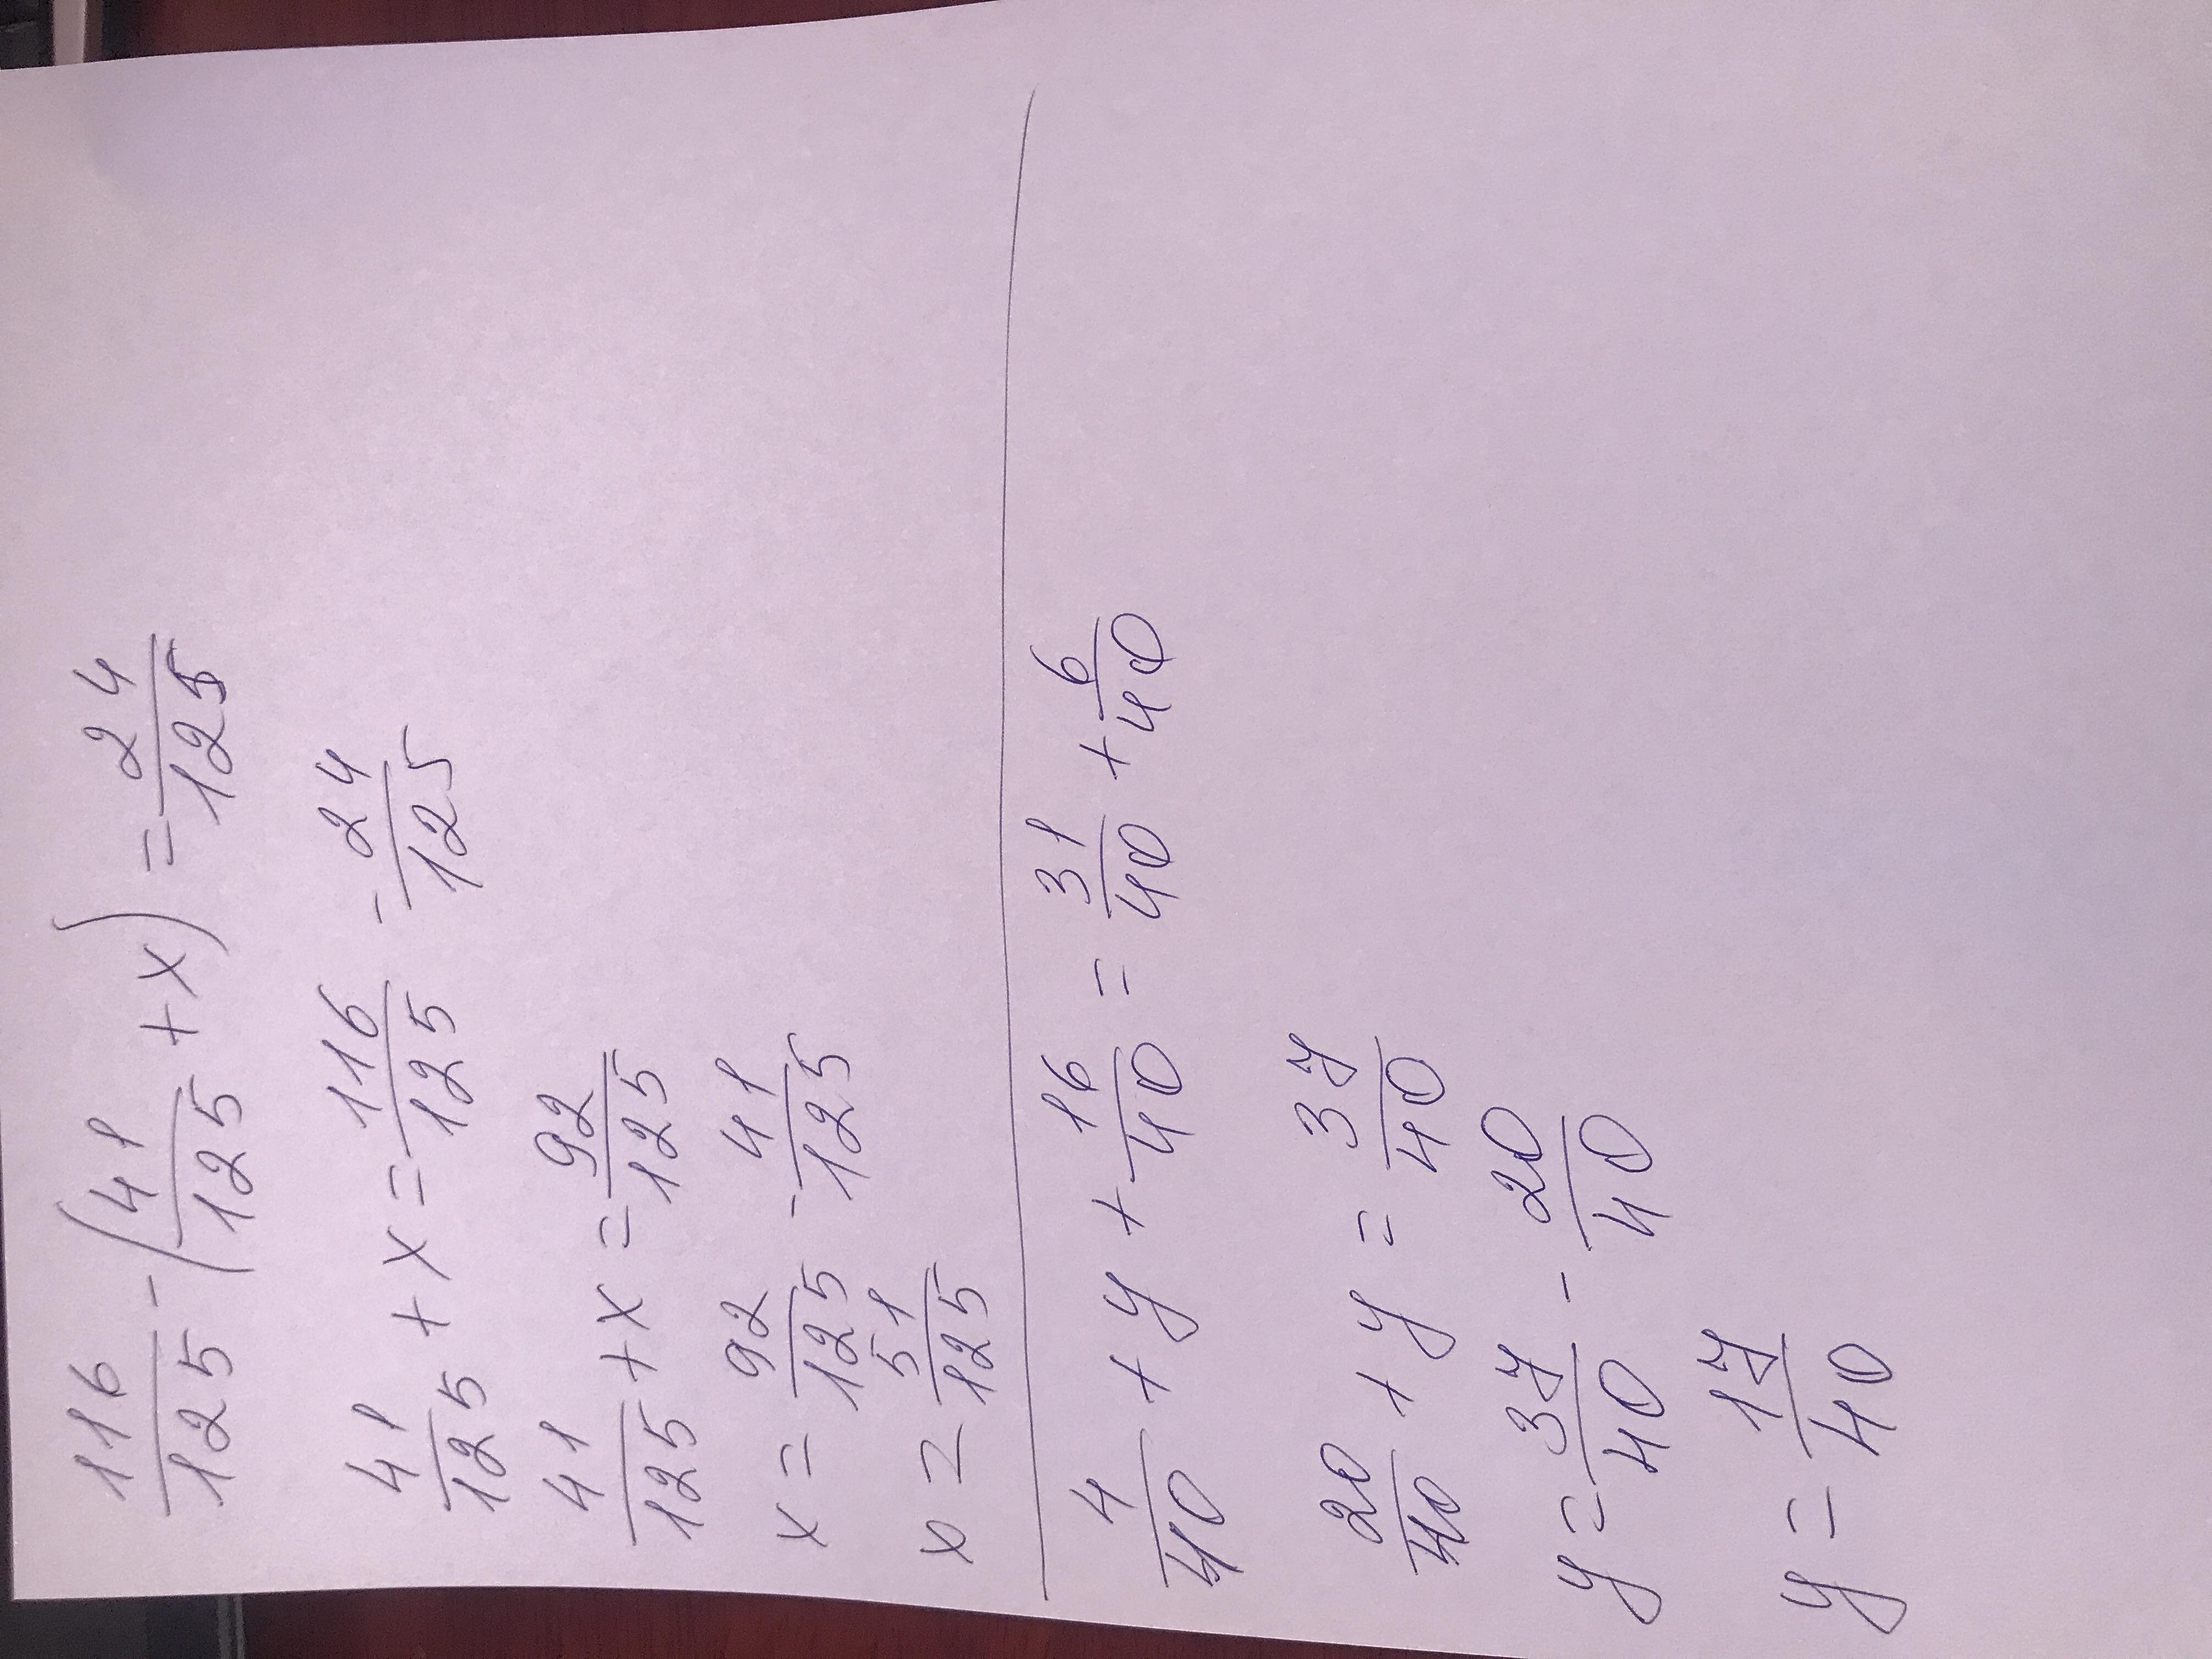 116/125 - (41/125 + x) = 24/125
41/125 + x = 116/125 - 24/125
41/125 + x = 92/125
x = 92/125 - 41/125
x = 51/125
4/40 + y + 16/40 = 31/40 + 6/40
20/40 + y = 37/40
y = 37/40 - 20/40
y = 17/40